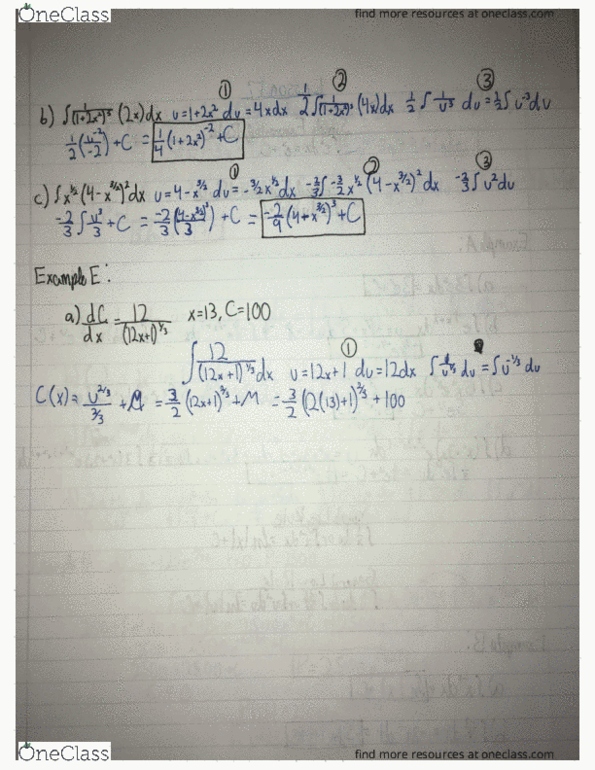 OneClass
find more resources at oneclass.com
① ② ③
b) ∫ 1/(1+2x²)³ (2x)dx u=1+2x² du=4xdx 1/2∫ 1/(1+2x²)³ (4x)dx 1/2 ∫ 1/u³ du = 1/2∫ u⁻³ du
1/2 (u⁻²/-2) + C = 1/4 (1+2x²)⁻² + C
① ② ③
c) ∫ x^½ (4-x^3/2)² dx u=4-x^3/2 du=-3/2 x^½ dx -2/3 ∫ -3/2 x^½ (4-x^3/2)² dx -2/3 ∫ u² du
-2/3 ∫ u³/3 + C = -2/3 ((4-x^3/2)³/3) + C = -2/9 (4-x^3/2)³ + C
Example E:
a) dC/dx = 12/(12x+1)^⅓ x=13, C=100
①
∫ 12/(12x+1)^⅓ dx u=12x+1 du=12dx ∫ 1/u^⅓ du = ∫ u^-⅓ du
C(x) = u^2/3 / 2/3 + M = 3/2 (12x+1)^2/3 + M = 3/2 (2(13)+1)^2/3 + 100
OneClass
find more resources at oneclass.com